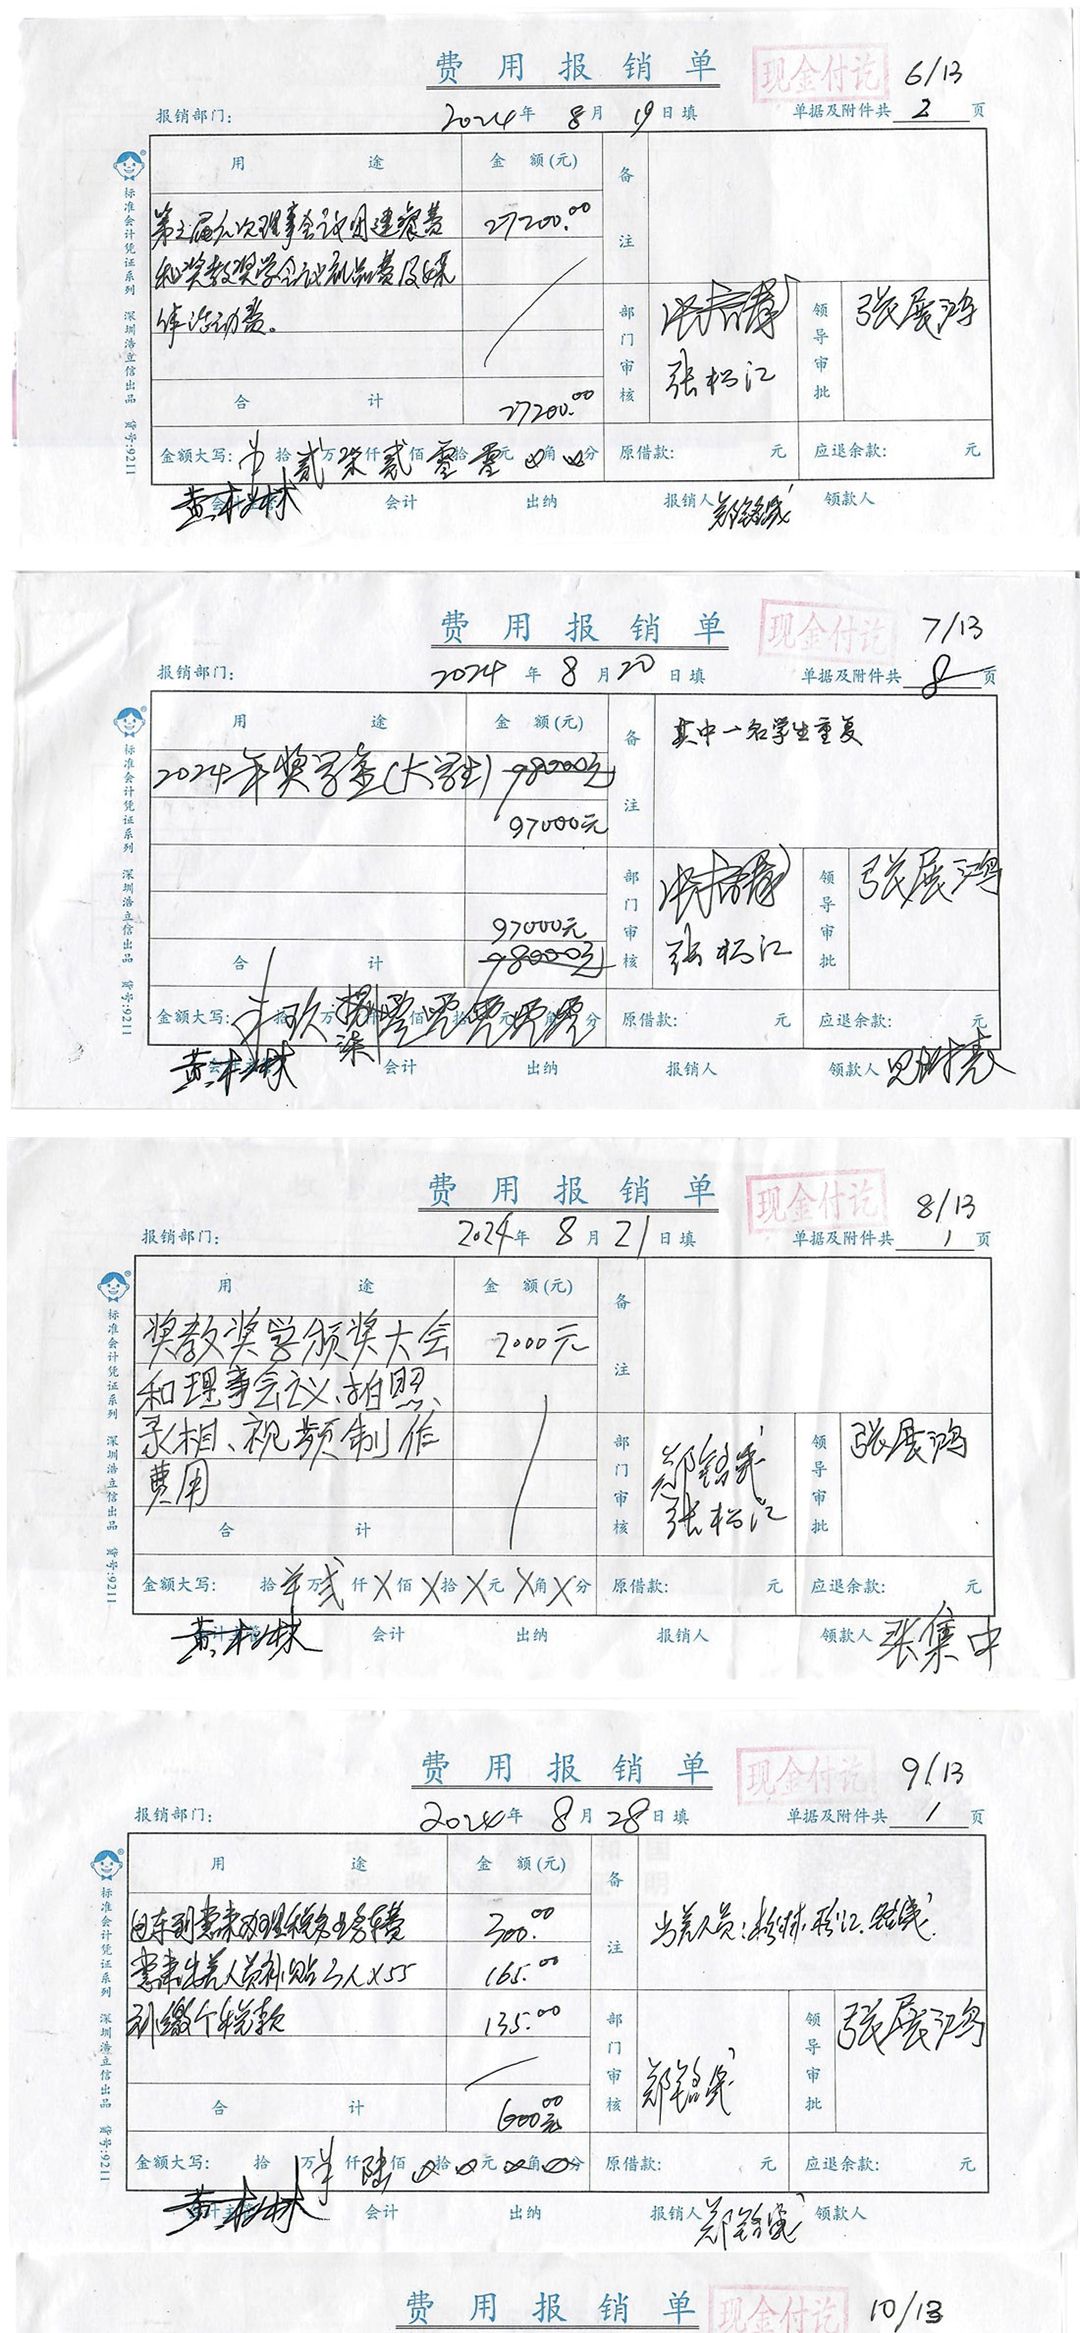 费用报销单
现金付讫
6/13
报销部门:
2024年 8月 19日填
单据及附件共 2 页
用途
金额(元)
备注
27200.00
和奖教奖学会议礼品费及媒
体活动费。
部门审核
张松江
领导审批
张展鸿
合计
27200.00
金额大写: 拾 贰万柒仟贰佰零拾零元 角 分
原借款: 元
应退余款: 元
黄松林
会计
出纳
报销人 郑铭成
领款人
标准会计凭证系列 深圳浩立信出品 货号:9211
费用报销单
现金付讫
7/13
报销部门:
2024年 8月 20日填
单据及附件共 8 页
用途
金额(元)
备注
其中一名学生重复
2024年奖学金(大学生)
98000元
97000元
部门审核
张松江
领导审批
张展鸿
97000元
合计
98000元
金额大写: 拾 玖万 捌 柒仟零佰零拾零元零角零分
原借款: 元
应退余款: 元
黄松林
会计
出纳
报销人
领款人
标准会计凭证系列 深圳浩立信出品 货号:9211
费用报销单
现金付讫
8/13
报销部门:
2024年 8月 21日填
单据及附件共 1 页
用途
金额(元)
备注
奖教奖学颁奖大会
2000元
和理事会议、拍照、
录相、视频制作
费用
部门审核
郑铭成
张松江
领导审批
张展鸿
合计
金额大写: 拾 万贰仟X佰X拾X元X角X分
原借款: 元
应退余款: 元
黄松林
会计
出纳
报销人
领款人 张集中
标准会计凭证系列 深圳浩立信出品 货号:9211
费用报销单
现金付讫
9/13
报销部门:
2024年 8月 28日填
单据及附件共 1 页
用途
金额(元)
备注
出差人员:松林、松江、铭成
300.00
惠来出差人员补贴3人×55
165.00
补缴个税款
135.00
部门审核
郑铭成
领导审批
张展鸿
合计
600.00元
金额大写: 拾 万 仟陆佰 拾 元 角 分
原借款: 元
应退余款: 元
黄松林
会计
出纳
报销人 郑铭成
领款人
标准会计凭证系列 深圳浩立信出品 货号:9211
费用报销单
现金付讫
10/13